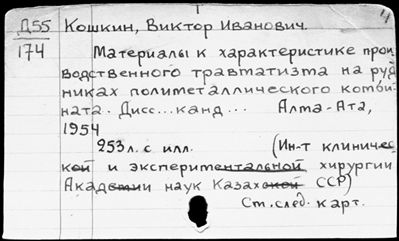 4
Д55 Кошкин, Виктор Иванович.
174 Материалы к характеристике прои
водственного травматизма на руд
никах полиметаллического комби
ната. Дисс... канд... Алма-Ата,
1954
253л. с илл. (Ин-т клиничес
кой и экспериментальной хирургии
Академии наук Казахской ССР)
См. след. карт.